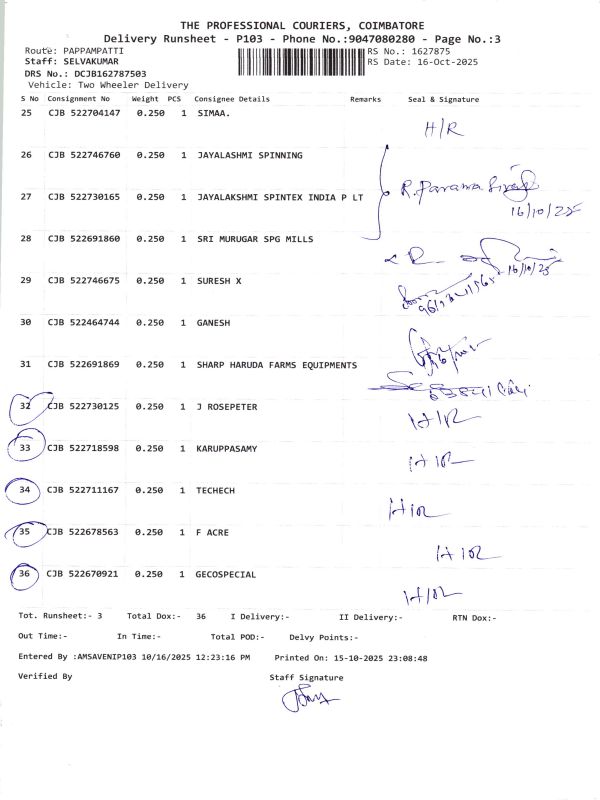 THE PROFESSIONAL COURIERS, COIMBATORE
Delivery Runsheet - P103 - Phone No.:9047080280 - Page No.:3
Route: PAPPAMPATTI RS No.: 1627875
Staff: SELVAKUMAR RS Date: 16-Oct-2025
DRS No.: DCJB162787503
Vehicle: Two Wheeler Delivery
S No Consignment No Weight PCS Consignee Details Remarks Seal & Signature
25 CJB 522704147 0.250 1 SIMAA.
H/R
26 CJB 522746760 0.250 1 JAYALASHMI SPINNING
27 CJB 522730165 0.250 1 JAYALAKSHMI SPINTEX INDIA P LT
16/10/25
28 CJB 522691860 0.250 1 SRI MURUGAR SPG MILLS
16/10/25
29 CJB 522746675 0.250 1 SURESH X
30 CJB 522464744 0.250 1 GANESH
31 CJB 522691869 0.250 1 SHARP HARUDA FARMS EQUIPMENTS
32 CJB 522730125 0.250 1 J ROSEPETER
H/R
33 CJB 522718598 0.250 1 KARUPPASAMY
H/R
34 CJB 522711167 0.250 1 TECHECH
H/R
35 CJB 522678563 0.250 1 F ACRE
H/R
36 CJB 522670921 0.250 1 GECOSPECIAL
H/R
Tot. Runsheet:- 3 Total Dox:- 36 I Delivery:- II Delivery:- RTN Dox:-
Out Time:- In Time:- Total POD:- Delvy Points:-
Entered By :AMSAVENIP103 10/16/2025 12:23:16 PM Printed On: 15-10-2025 23:08:48
Verified By Staff Signature